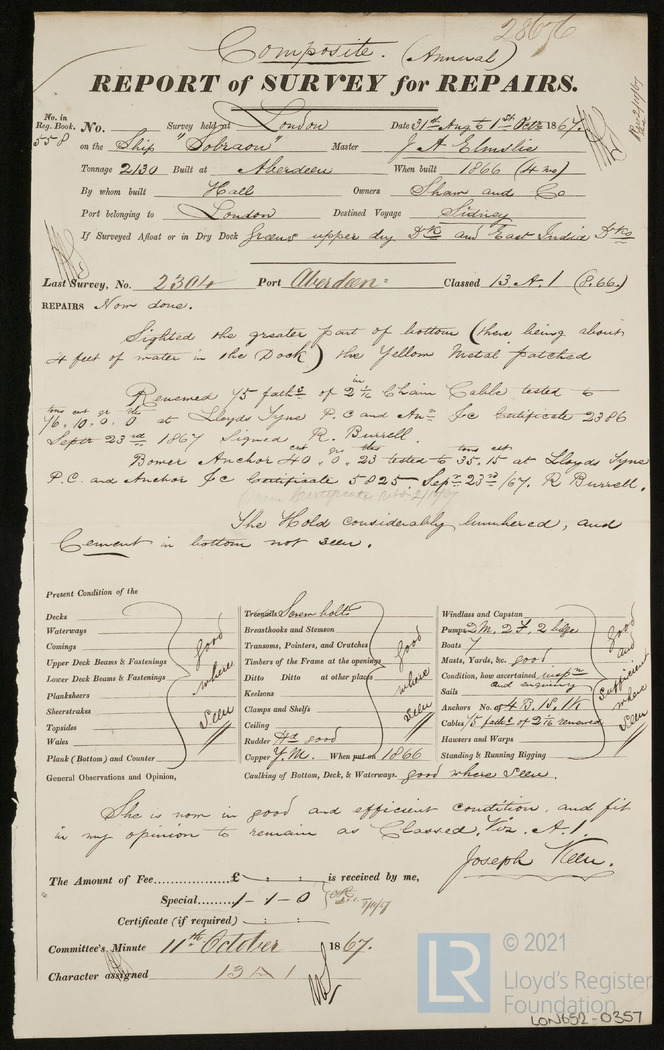 28676
Composite. (Annual)
REPORT of SURVEY for REPAIRS.
No. in Reg. Book. 558
No. Survey held at London Date 31st Aug to 1st Octr 1867.
on the Ship "Sobraon" Master J A Elmslie
Tonnage 2130 Built at Aberdeen When built 1866 (4 mo)
By whom built Hall Owners Shaw and Co
Port belonging to London Destined Voyage Sidney
If Surveyed Afloat or in Dry Dock Greens upper dry Dk and East India Dks
Last Survey, No. 2304 Port Aberdeen Classed 13 A.1 (8.66.)
REPAIRS Now done.
Sighted the greater part of bottom (there being about
4 feet of water in the Dock) the Yellow Metal patched
Renewed 75 faths of 2 1/16 in Chain Cable tested to
tons cwt qr lbs
76.10.0.0 at Lloyds Tyne P.C and Anr &c Certificate 2386
Septr 23rd 1867 Signed R. Burrell.
Bower Anchor 40 cwt. 0 qr. 23 lbs tested to 35 tons. 15 cwt at Lloyds Tyne
P.C. and Anchor &c Certificate 5825. Sepr 23rd /67. R Burrell.
The Hold considerably lumbered, and
Cement in bottom not seen.
Present Condition of the
Decks
Waterways
Comings
Upper Deck Beams & Fastenings
Lower Deck Beams & Fastenings
Planksheers
Sheerstrakes
Topsides
Wales
Plank (Bottom) and Counter
good where seen
Treenails Screw bolts
Breasthooks and Stemson
Transoms, Pointers, and Crutches
Timbers of the Frame at the openings
Ditto Ditto at other places
Keelsons
Clamps and Shelfs
Ceiling
good where seen
Rudder Hd good
Copper Y.M. When put on 1866
Windlass and Capstan
Pumps 2 M, 2 , 2 bilge
Boats 7
Masts, Yards, &c. good
Condition, how ascertained inspn and enquiry
Sails
Anchors No. of 4 B, 1S, 1K
Cables 75 faths of 2 1/16 renewed
Hawsers and Warps
Standing & Running Rigging
good and sufficient where seen
General Observations and Opinion,
Caulking of Bottom, Deck, & Waterways. good where seen.
She is now in good and efficient condition, and fit
in my opinion to remain as Classed, Viz. A.1.
Joseph Keen.
The Amount of Fee £ : : is received by me,
Special 1-1-0
Certificate (if required) : :
Committee's Minute 11th October 1867.
Character assigned 13 A 1
LR © 2021
Lloyd's Register
Foundation
LON652-0357